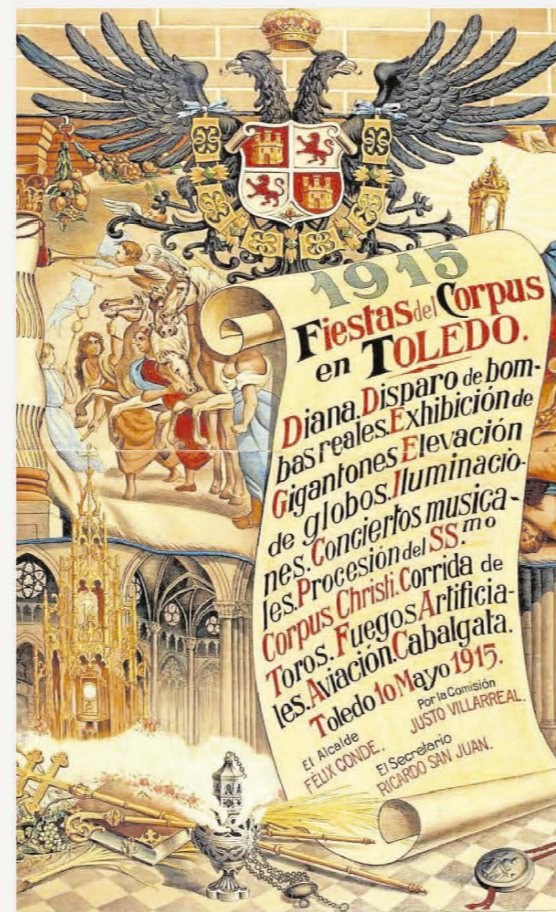 1915
Fiestas del Corpus
en TOLEDO.
Diana. Disparo de bom-
bas reales. Exhibición de
Gigantones. Elevación
de globos. Iluminacio-
nes. Conciertos musica-
les. Procesión del SS.mo
Corpus Christi. Corrida de
Toros. Fuegos Artificia-
les. Aviación. Cabalgata.
Toledo 10 Mayo 1915.
El Alcalde
FELIX CONDE.
Por la Comisión
JUSTO VILLARREAL.
El Secretario
RICARDO SAN JUAN.